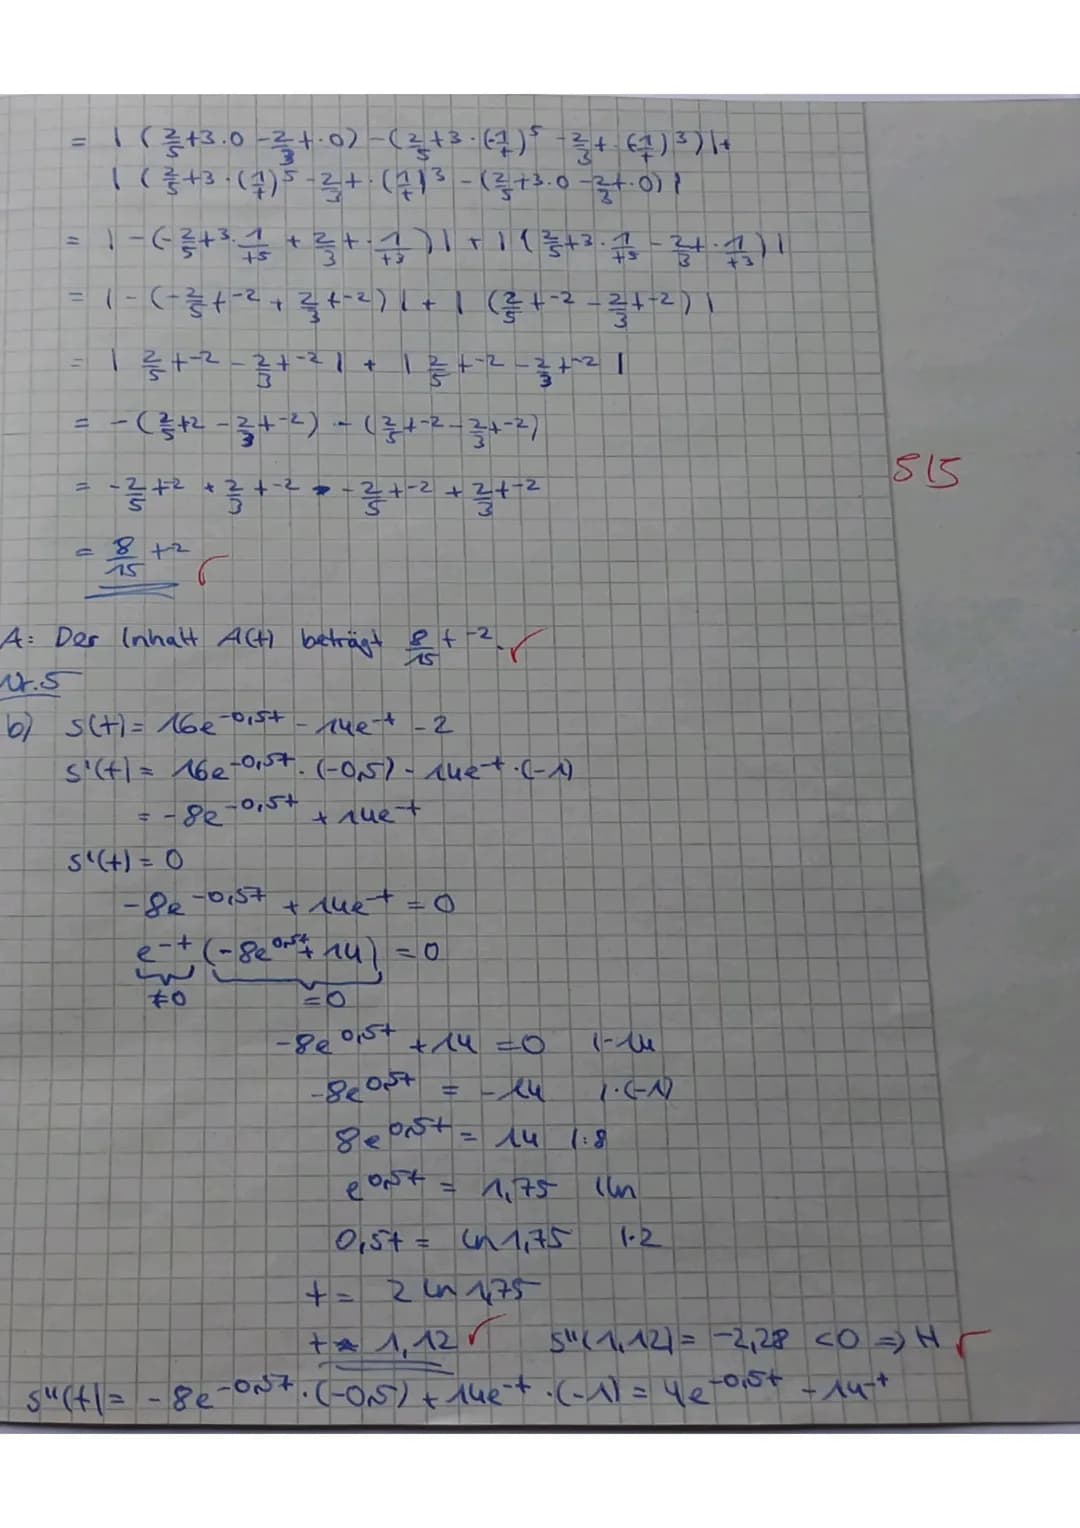 = | (2/5 t³·0 - 2/3 t·0) - (2/5 t³·(-1/t)⁵ - 2/3 t·(-1/t)³) | +
| (2/5 t³·(1/t)⁵ - 2/3 t·(1/t)³ - (2/5 t³·0 - 2/3 t·0) |
= | -(-2/5 t³·1/t⁵ + 2/3 t·1/t³) | + | (2/5 t³·1/t⁵ - 2/3 t·1/t³) |
= | -(-2/5 t⁻² + 2/3 t⁻²) | + | (2/5 t⁻² - 2/3 t⁻²) |
= | 2/5 t⁻² - 2/3 t⁻² | + | 2/5 t⁻² - 2/3 t⁻² |
= -(2/5 t² - 2/3 t⁻²) - (2/5 t⁻² - 2/3 t⁻²)
= -2/5 t² + 2/3 t⁻² - 2/5 t⁻² + 2/3 t⁻²
5/5
= 8/15 t² ✓
A: Der Inhalt A(t) beträgt 8/15 t⁻². ✓
Nr. 5
b) s(t) = 16e^-0,5t - 14e^-t - 2
s'(t) = 16e^-0,5t · (-0,5) - 14e^-t · (-1)
= -8e^-0,5t + 14e^-t
s'(t) = 0
-8e^-0,5t + 14e^-t = 0
e^-t (-8e^0,5t + 14) = 0
≠0 =0
-8e^0,5t + 14 = 0 |-14
-8e^0,5t = -14 |·(-1)
8e^0,5t = 14 |:8
e^0,5t = 1,75 |ln
0,5t = ln 1,75 |·2
t = 2 ln 1,75
t ≈ 1,12 ✓ s''(1,12) = -2,28 <0 ⇒ H ✓
s''(t) = -8e^-0,5t · (-0,5) + 14e^-t · (-1) = 4e^-0,5t - 14^-t